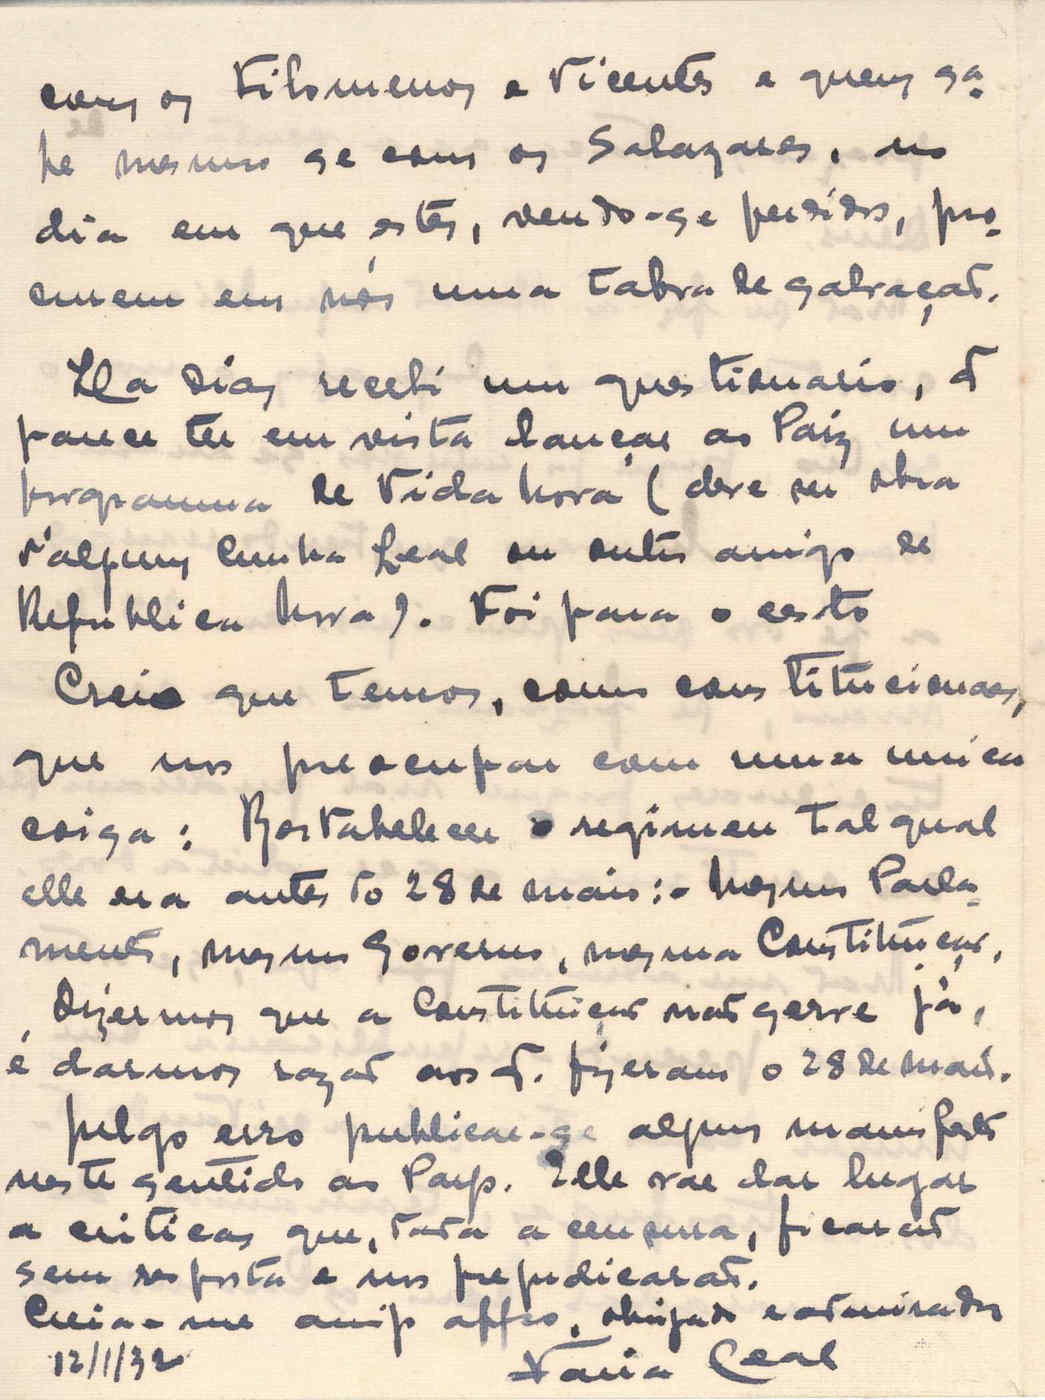 com os Filomenos e Vicentes e quem sa-
be mesmo se com os Salazares, no
dia em que estes, vendo-se perdidos, pro-
curem em nós uma tabua de salvaçaõ.
Ha dias recebi um questionario, q
parece ter em vista lançar ao Paiz um
programma de Vida Nova (deve ser obra
d'algum Cunha Leal ou outro amigo da
Republica Nova). Foi para o cesto
Creio que temos, como constitucionaes,
que nos preocupar com uma unica
coisa: Restabelecer o regimen tal qual
elle era antes do 28 de maio:- Mesmo Parla-
mento, mesmo Governo, mesma Constituiçaõ.
Dizermos que a Constituiçaõ naõ serve já,
é darmos razaõ aos q. fizeram o 28 de maio.
Julgo erro publicar-se algum manifesto
neste sentido ao Paiz. Elle vae dar lugar
a criticas que, dada a censura, ficaraõ
sem resposta e nos prejudicaraõ.
Creia-me amigo affço, obrigado e admirador
12/1/32 Faria Leal